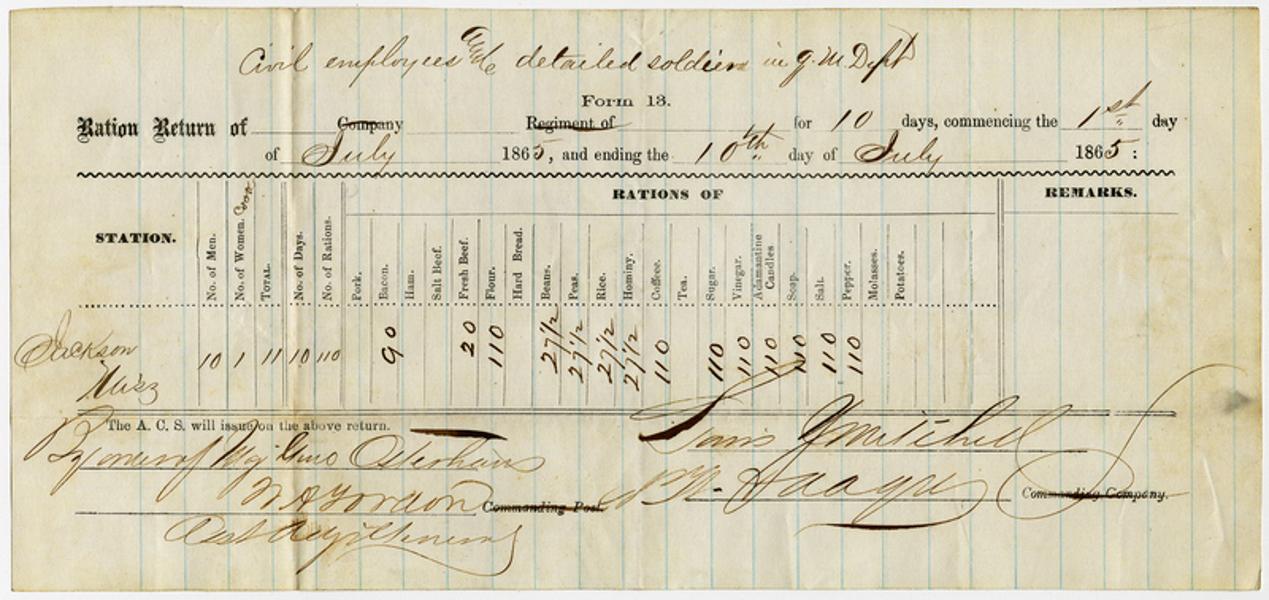 Civil employees and detailed soldiers in Q. M. Dept
Form 13.
Ration Return of Company Regiment of for 10 days, commencing the 1st day
of July 1865, and ending the 10th day of July 1865:
STATION. No. of Men. No. of Women. TOTAL. No. of Days. No. of Rations. RATIONS OF REMARKS.
Pork. Bacon. Ham. Salt Beef. Fresh Beef. Flour. Hard Bread. Beans. Peas. Rice. Hominy. Coffee. Tea. Sugar. Vinegar. Adamantine Candles Soap. Salt. Pepper. Molasses. Potatoes.
Jackson 10 1 11 10 110 90 20 110 27 1/2 27 1/2 27 1/2 27 1/2 110 110 110 110 110 110 110
Miss
The A. C. S. will issue on the above return.
By order of Maj Genl Osterhaus Mitchell
Gordon Commanding Post. Commanding Company.
Asst Adjt General